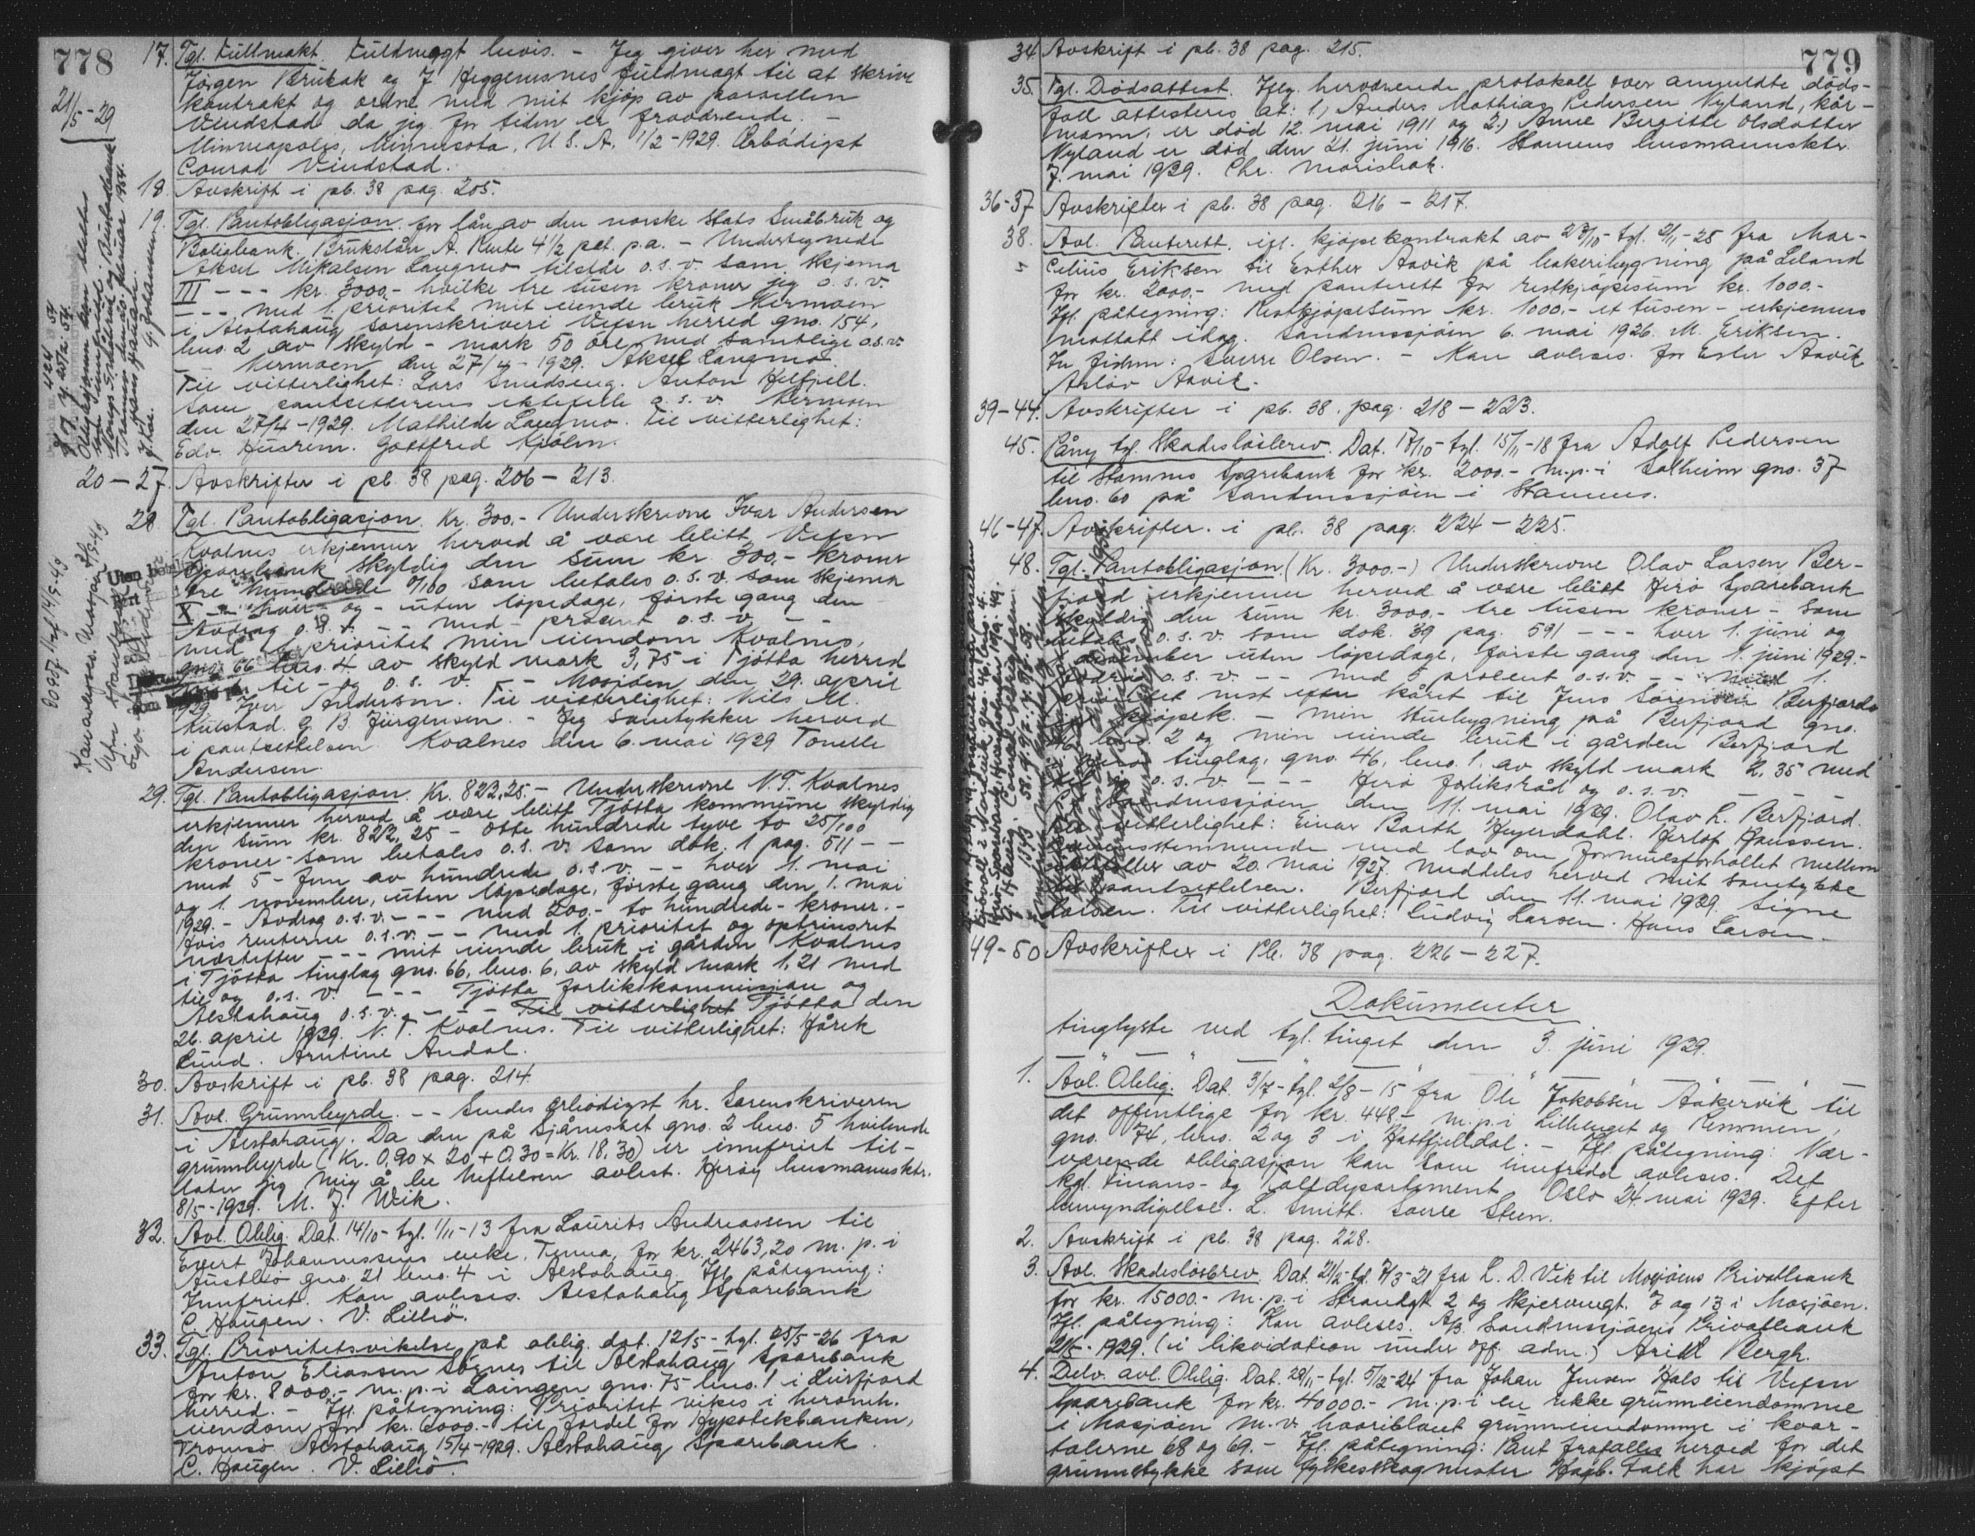 778
21/5-29
17. Tgl. Fullmakt. Fuldmagt hevis. - Jeg giver her med
Jørgen Brubak og J. Heggenesnes fuldmagt til at skrive
kontrakt og ordne med mit kjøp av parsellen
Vindstad da jeg for tiden er fraværende. -
Minneapoles, Minnesota, U.S.A. 1/2-1929. Ærbødigst
Conrad Vindstad.
18. Avskrift i pb. 38 pag. 205.
19. Tgl. Pantobligasjon for lån av den norske stats Småbruk og
Boligbank. Brukslån A. Rente 4 1/2 pct. p.a. - Undertegnede
Aksel Mikalsen Langmo tilstår o.s.v. som skjema
III --- kr. 3000,- hvilke tre tusen kroner jeg o.s.v.
--- med 1. prioritet mit eiende bruk Hermoen
i Alstahaug sorenskriveri Vefsn herred gno. 154,
bno. 2 av skyld - mark 50 øre med samtlige o.s.v.
-- Hermoen den 27/4-1929. Aksel Langmo.
Til vitterlighet: Lars Smedseng. Anton Kilfjell.
Som pantsetterens ektefelle o.s.v. Hermoen
den 27/4-1929. Mathilde Langmo. Til vitterlighet:
Edv. Husrem. Gottfred Kjølen.
20-27. Avskrifter i pb. 38 pag. 206-213.
28. Tgl. Pantobligasjon. Kr. 300,- Underskrevne Ivar Andersen
Kvalnes erkjenner herved å være blitt Vefsn
Sparebank skyldig den sum kr. 300,- kroner
tre hundrede 0/100 som betales o.s.v. som skjema
X -- hver - og - uten løpedage, første gang den
Avdrag o.s.v. -- med - procent o.s.v. --
med 1. prioritet min eiendom Kvalnes,
gno. 66 bno. 4 av skyld mark 3,75 i Tjøtta herred
til - og o.s.v. -- Mosjøen den 29. april
1929 Iver Andersen. Til vitterlighet: Nils M.
Kulstad. G B Jürgensen. - Jeg samtykker herved
i pantsettelsen. Kvalnes den 6. mai 1929 Tonette
Andersen.
29. Tgl. Pantobligasjon. Kr. 822,25. - Underskrevne N.T. Kvalnes
erkjenner herved å være blitt Tjøtta kommune skyldig
den sum kr. 822,25 - otte hundrede tyve to 25/100
kroner - som betales o.s.v. som dok. 1 pag. 511 --
med 5 - fem av hundrede o.s.v. -- hver 1. mai
og 1. november, uten løpedage, første gang den 1. mai
1929. - Avdrag o.s.v. --- med 200,- to hundrede - kroner. -
Hvis renterne o.s.v. -- med 1 prioritet og optrinsret
næstefter --- mit eiende bruk i gården Kvalnes
i Tjøtta tinglag gno. 66, bno. 6, av skyld mark 1,21 med
til og o.s.v. --- Tjøtta forlikskommission og
Alstahaug o.s.v. --- Til vitterlighet Tjøtta den
26. april 1929. N.T. Kvalnes. Til vitterlighet: Hårek
Lund. Arntine Andal.
30. Avskrift i pb. 38 pag. 214.
31. Avl. Grunnbyrde. -- Sendes ærbødigst hr. Sorenskriveren
i Alstahaug. Da den på Sjåneset gno. 2 bno. 5 hvilende
grunnbyrde (kr. 0,90 x 20 + 0,30 = kr. 18,30) er innfriet til-
later jeg mig å be heftelsen avlest. Herøy lensmannsktr.
8/5-1929. M. J. Wik.
32. Avl. Oblig. Dat. 14/10-tgl. 1/11-13 fra Laurits Andreassen til
Evert Johannessens enke, Tenna, for kr. 2463,20 m.p. i
Austbø gno. 21 bno. 4 i Alstahaug. Ifl. påtegning:
Innfriet. Kan avleses. Alstahaug Sparebank
C. Haugen. V. Lillið.
33. Tgl. Prioritetsvikelse på oblig. dat. 12/5-tgl. 25/5-26 fra
Anton Eliassen Sognes til Alstahaug Sparebank
for kr. 8000,- m.p. i Leingen gno. 75 bno. 1 i Leirfjord
herred. - Ifl. påtegning: Prioritet vikes i heromh.
eiendom for kr. 6000,- til fordel for Hypotekbanken,
Tromsø. Alstahaug 15/4-1929. Alstahaug Sparebank.
C. Haugen. V. Lillið.
779
34. Avskrift i pb. 38 pag. 215.
35. Tgl. Dødsattest. Iflg. herværende protokoll over anmeldte døds-
fall attesteres at: 1) Anders Mathias Pedersen Nyland, kår-
mann, er død 12. mai 1911 og 2.) Anne Bergitte Olsdatter
Nyland er død den 21. juni 1916. Stamnes lensmannsktr.
7. mai 1929. Chr. Marishak.
36-37 Avskrifter i pb. 38 pag. 216-217.
38. Avl. Panterett ifl. kjøpekontrakt av 23/10-tgl. 2/11-25 fra Mar-
celius Eriksen til Esther Aavik på bakeribygning på Leland
for kr. 2000,- med panterett for restkjøpesum kr. 1000,-
Ifl. påtegning: Restkjøpesum kr. 1000,- et tusen - erkjennes
mottatt idag. Sandnessjøen 6. mai 1926. M. Eriksen.
In fidem: Sverre Olsen. - Kan avleses. for Ester Aavik
Asløv Aavik.
39-44. Avskrifter i pb. 38. pag. 218-223.
45. Påny tgl. Skadesløsbrev. Dat. 17/10-tgl. 15/11-18 fra Adolf Pedersen
til Stamnes Sparebank for kr. 2000,- m.p. i Solheim gno. 37
bno. 60 på Sandnessjøen i Stamnes.
46-47. Avskrifter. i pb. 38 pag. 224-225.
48. Tgl. Pantobligasjon (Kr. 3000.-) Underskrevne Olav Larsen Ber-
fjord erkjenner herved å være blitt Herø Sparebank
skyldig den sum kr. 3000,- tre tusen kroner - som
betales o.s.v. som dok. 39 pag. 591 --- hver 1. juni og
desember uten løpedage, første gang den 1. juni 1929.-
o.s.v. -- med 5 procent o.s.v. -- med 1.
prioritet nest efter kåret til Jens Sørensen Berfjords
- min stuebygning på Berfjord gno.
46, bno. 2 og min eiende bruk i gården Berfjord
tinglag, gno. 46, bno. 1. av skyld mark 2,35 med
o.s.v. --- Herø forliksråd og o.s.v. -
Sandnessjøen den 11. mai 1929. Olav L. Berfjord.
Til vitterlighet: Einar Barth Heyerdahl. Herlof Hanssen.
overensstemmende med lov om formuesforholdet mellem
ektefeller av 20. mai 1927 meddeles herved mit samtykke
til pantsettelsen. Berfjord den 11. mai 1929. Signe
Larsen. Til vitterlighet: Ludvig Larsen. Hans Larsen.-
49-50 Avskrifter i Pb. 38 pag. 226-227.
Dokumenter
tinglyste ved tgl. tinget den 3. juni 1929.
1. Avl. Oblig. Dat. 3/7-tgl. 2/8-15 fra Ole Jakobsen Aakervik til
det offentlige for kr. 448,- m.p. i Lilleenget og Remmen,
gno. 74, bno. 2 og 3 i Hattfjelldal. - Ifl. påtegning: Nær-
værende obligasjon kan som innfridd avleses. Det
kgl. Finans- og Tolldepartement, Oslo 24. mai 1929. Efter
bemyndigelse. L. Smitt. Sverre Steen.
2. Avskrift i pb. 38 pag. 228.
3. Avl. Skadesløsbrev. Dat. 21/2-tgl. 7/3-21 fra L. D. Vik til Mosjøens Privatbank
for kr. 15000.- m.p. i Strandgt 2 og Skjervengt. 7 og 13 i Mosjøen.
Ifl. påtegning: Kan avleses. A/S Sandnessjøens Privatbank
21/5-1929. (i likvidation under off. adm.) Arild Bergh.
4. Delv. avl. Oblig. Dat. 28/11-tgl. 5/12-24 fra Johan Jensen Hals til Vefsn
Sparebank for kr. 40000.- m.p. i en rekke grunneiendomme
i Mosjøen m.v. hvoriblant grunneiendomme i kvar-
talerne 68 og 69. - Ifl. påtegning: Pant frafalles herved for det
grunnstykke som fylkesskogmester Hagb. Falk har kjøpt